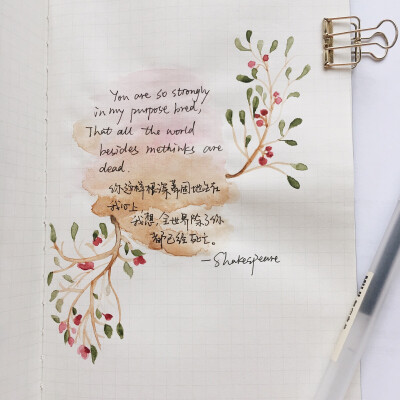 You are so strongly
in my purpose bred,
That all the world
besides methinks are
dead.
你这样根深蒂固地生在
我心上
我想,全世界除了你
都已经死亡。
—Shakespeare